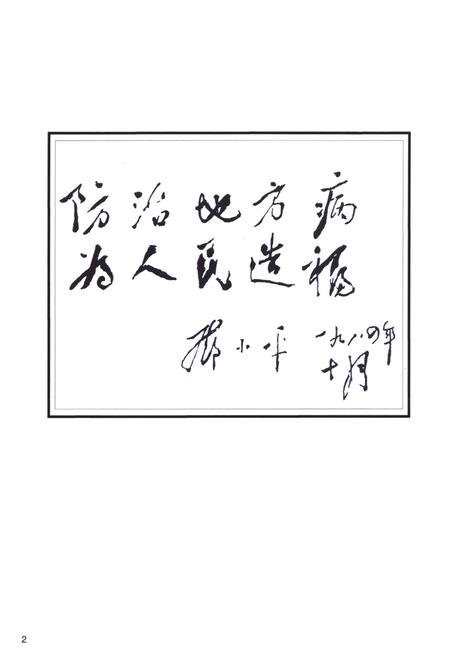 防治地方病
为人民造福
邓小平 一九八四年
十月
2